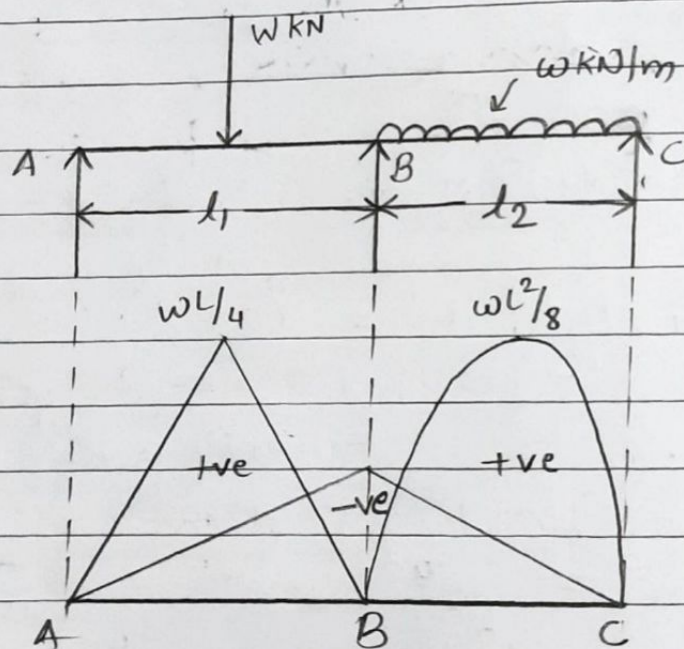 W KN
w KN/m
A B C
l₁ l₂
WL/4 wL²/8
+ve +ve
-ve
A B C